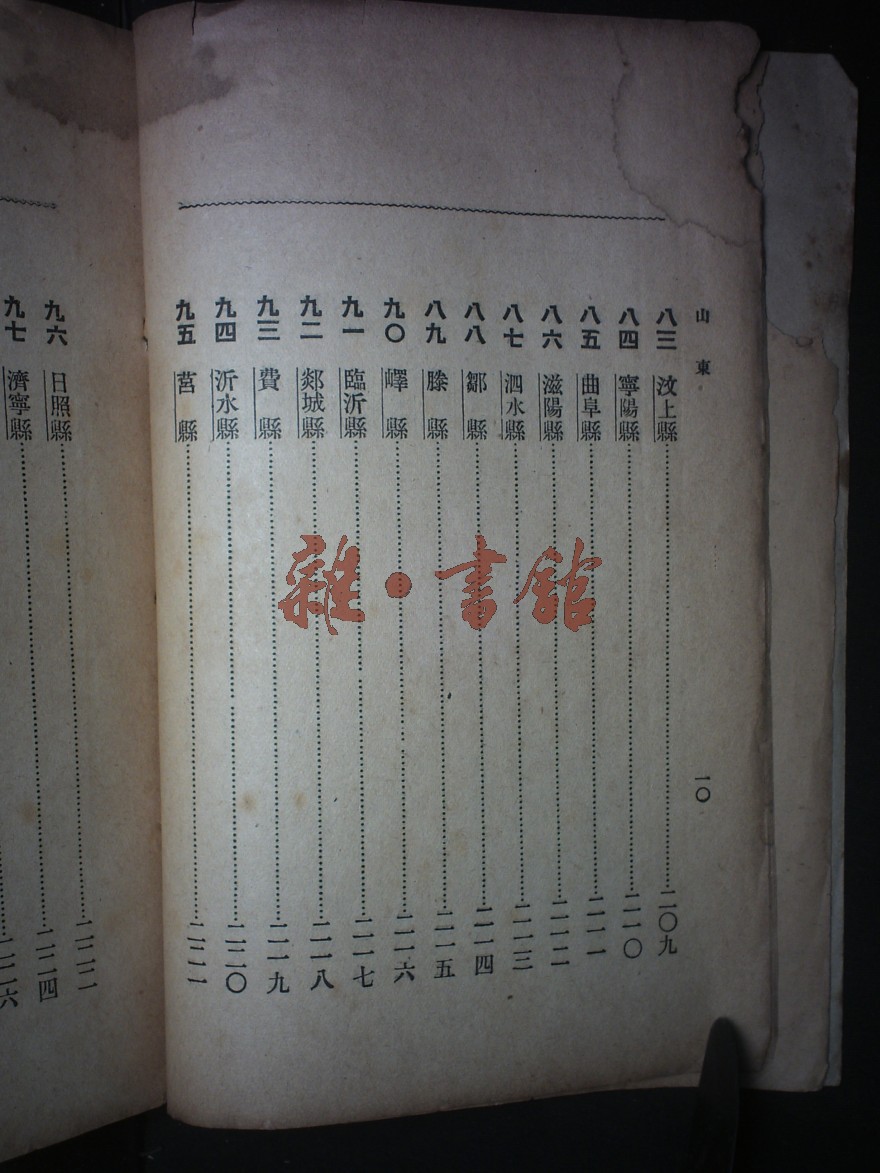 山東 一〇
八三 汶上縣……二〇九
八四 寧陽縣……二一〇
八五 曲阜縣……二一一
八六 滋陽縣……二一二
八七 泗水縣……二一三
八八 鄒縣……二一四
八九 滕縣……二一五
九〇 嶧縣……二一六
九一 臨沂縣……二一七
九二 郯城縣……二一八
九三 費縣……二一九
九四 沂水縣……二二〇
九五 莒縣……二二一
九六 日照縣……二二二
九七 濟寧縣……二二四
二二六
雜·書館